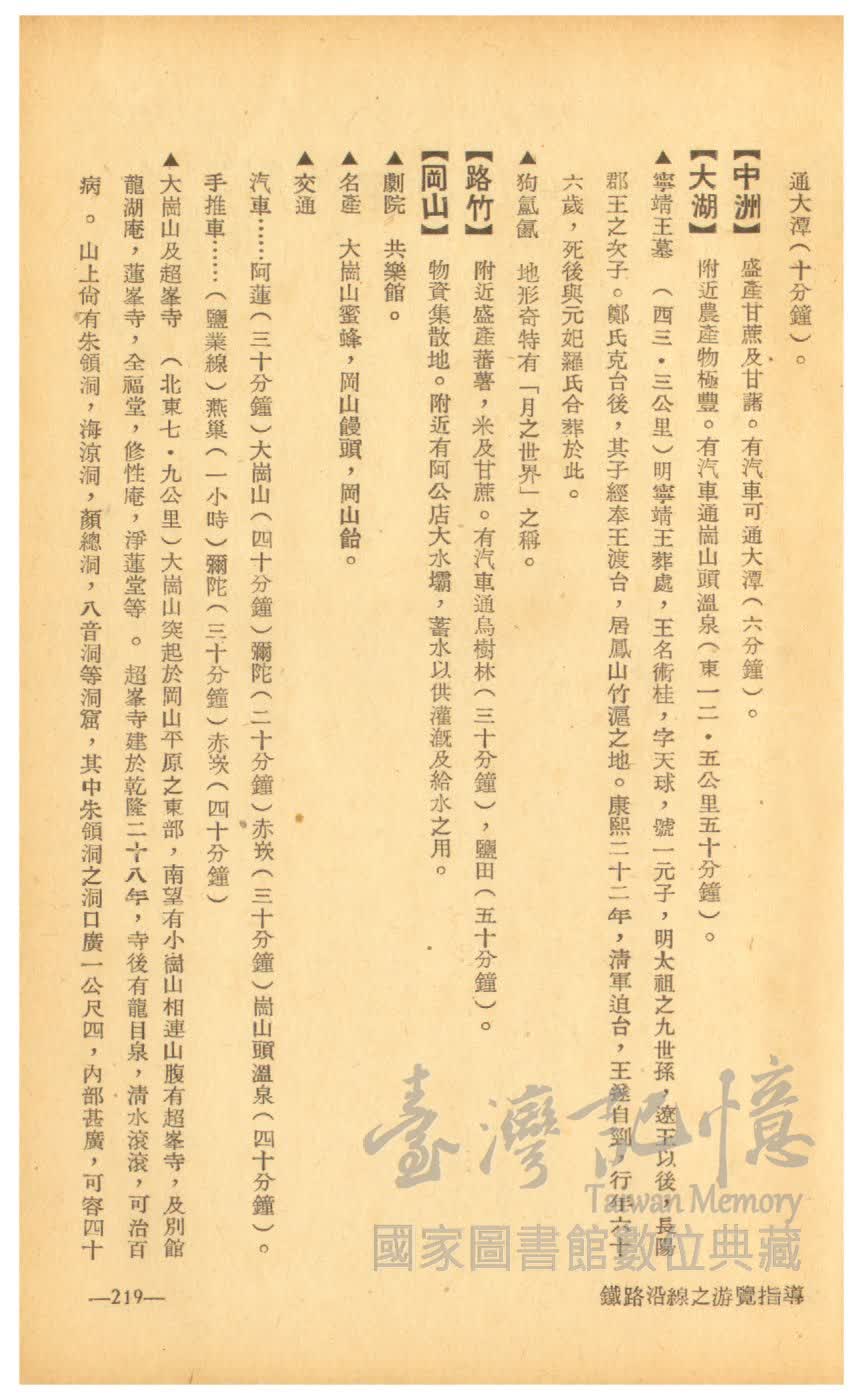 通大潭(十分鐘)。
【中洲】 盛產甘蔗及甘藷。有汽車可通大潭(六分鐘)。
【大湖】 附近農產物極豐。有汽車通崗山頭溫泉(東一二・五公里五十分鐘)。
▲寧靖王墓 (西三・三公里)明寧靖王葬處,王名術桂,字天球,號一元子,明太祖之九世孫,遼王以後,長陽
郡王之次子。鄭氏克台後,其子經奉王渡台,居鳳山竹滬之地。康熙二十二年,清軍迫台,王遂自剄,行年六十
六歲,死後與元妃羅氏合葬於此。
▲狗氳氤 地形奇特有「月之世界」之稱。
【路竹】 附近盛產蕃薯,米及甘蔗。有汽車通烏樹林(三十分鐘),鹽田(五十分鐘)。
【岡山】 物資集散地。附近有阿公店大水壩,蓄水以供灌溉及給水之用。
▲劇院 共樂館。
▲名產 大崗山蜜蜂,岡山饅頭,岡山飴。
▲交通
汽車……阿蓮(三十分鐘)大崗山(四十分鐘)彌陀(二十分鐘)赤崁(三十分鐘)崗山頭溫泉(四十分鐘)。
手推車……(鹽業線)燕巢(一小時)彌陀(三十分鐘)赤崁(四十分鐘)
▲大崗山及超峯寺 (北東七・九公里)大崗山突起於岡山平原之東部,南望有小崗山相連山腹有超峯寺,及別館
龍湖庵,蓮峯寺,全福堂,修性庵,淨蓮堂等。超峯寺建於乾隆二十八年,寺後有龍目泉,清水滾滾,可治百
病。山上尙有朱領洞,海涼洞,顏總洞,八音洞等洞窟,其中朱領洞之洞口廣一公尺四,內部甚廣,可容四十
臺灣記憶
Taiwan Memory
國家圖書館數位典藏
鐵路沿線之游覽指導
—219—